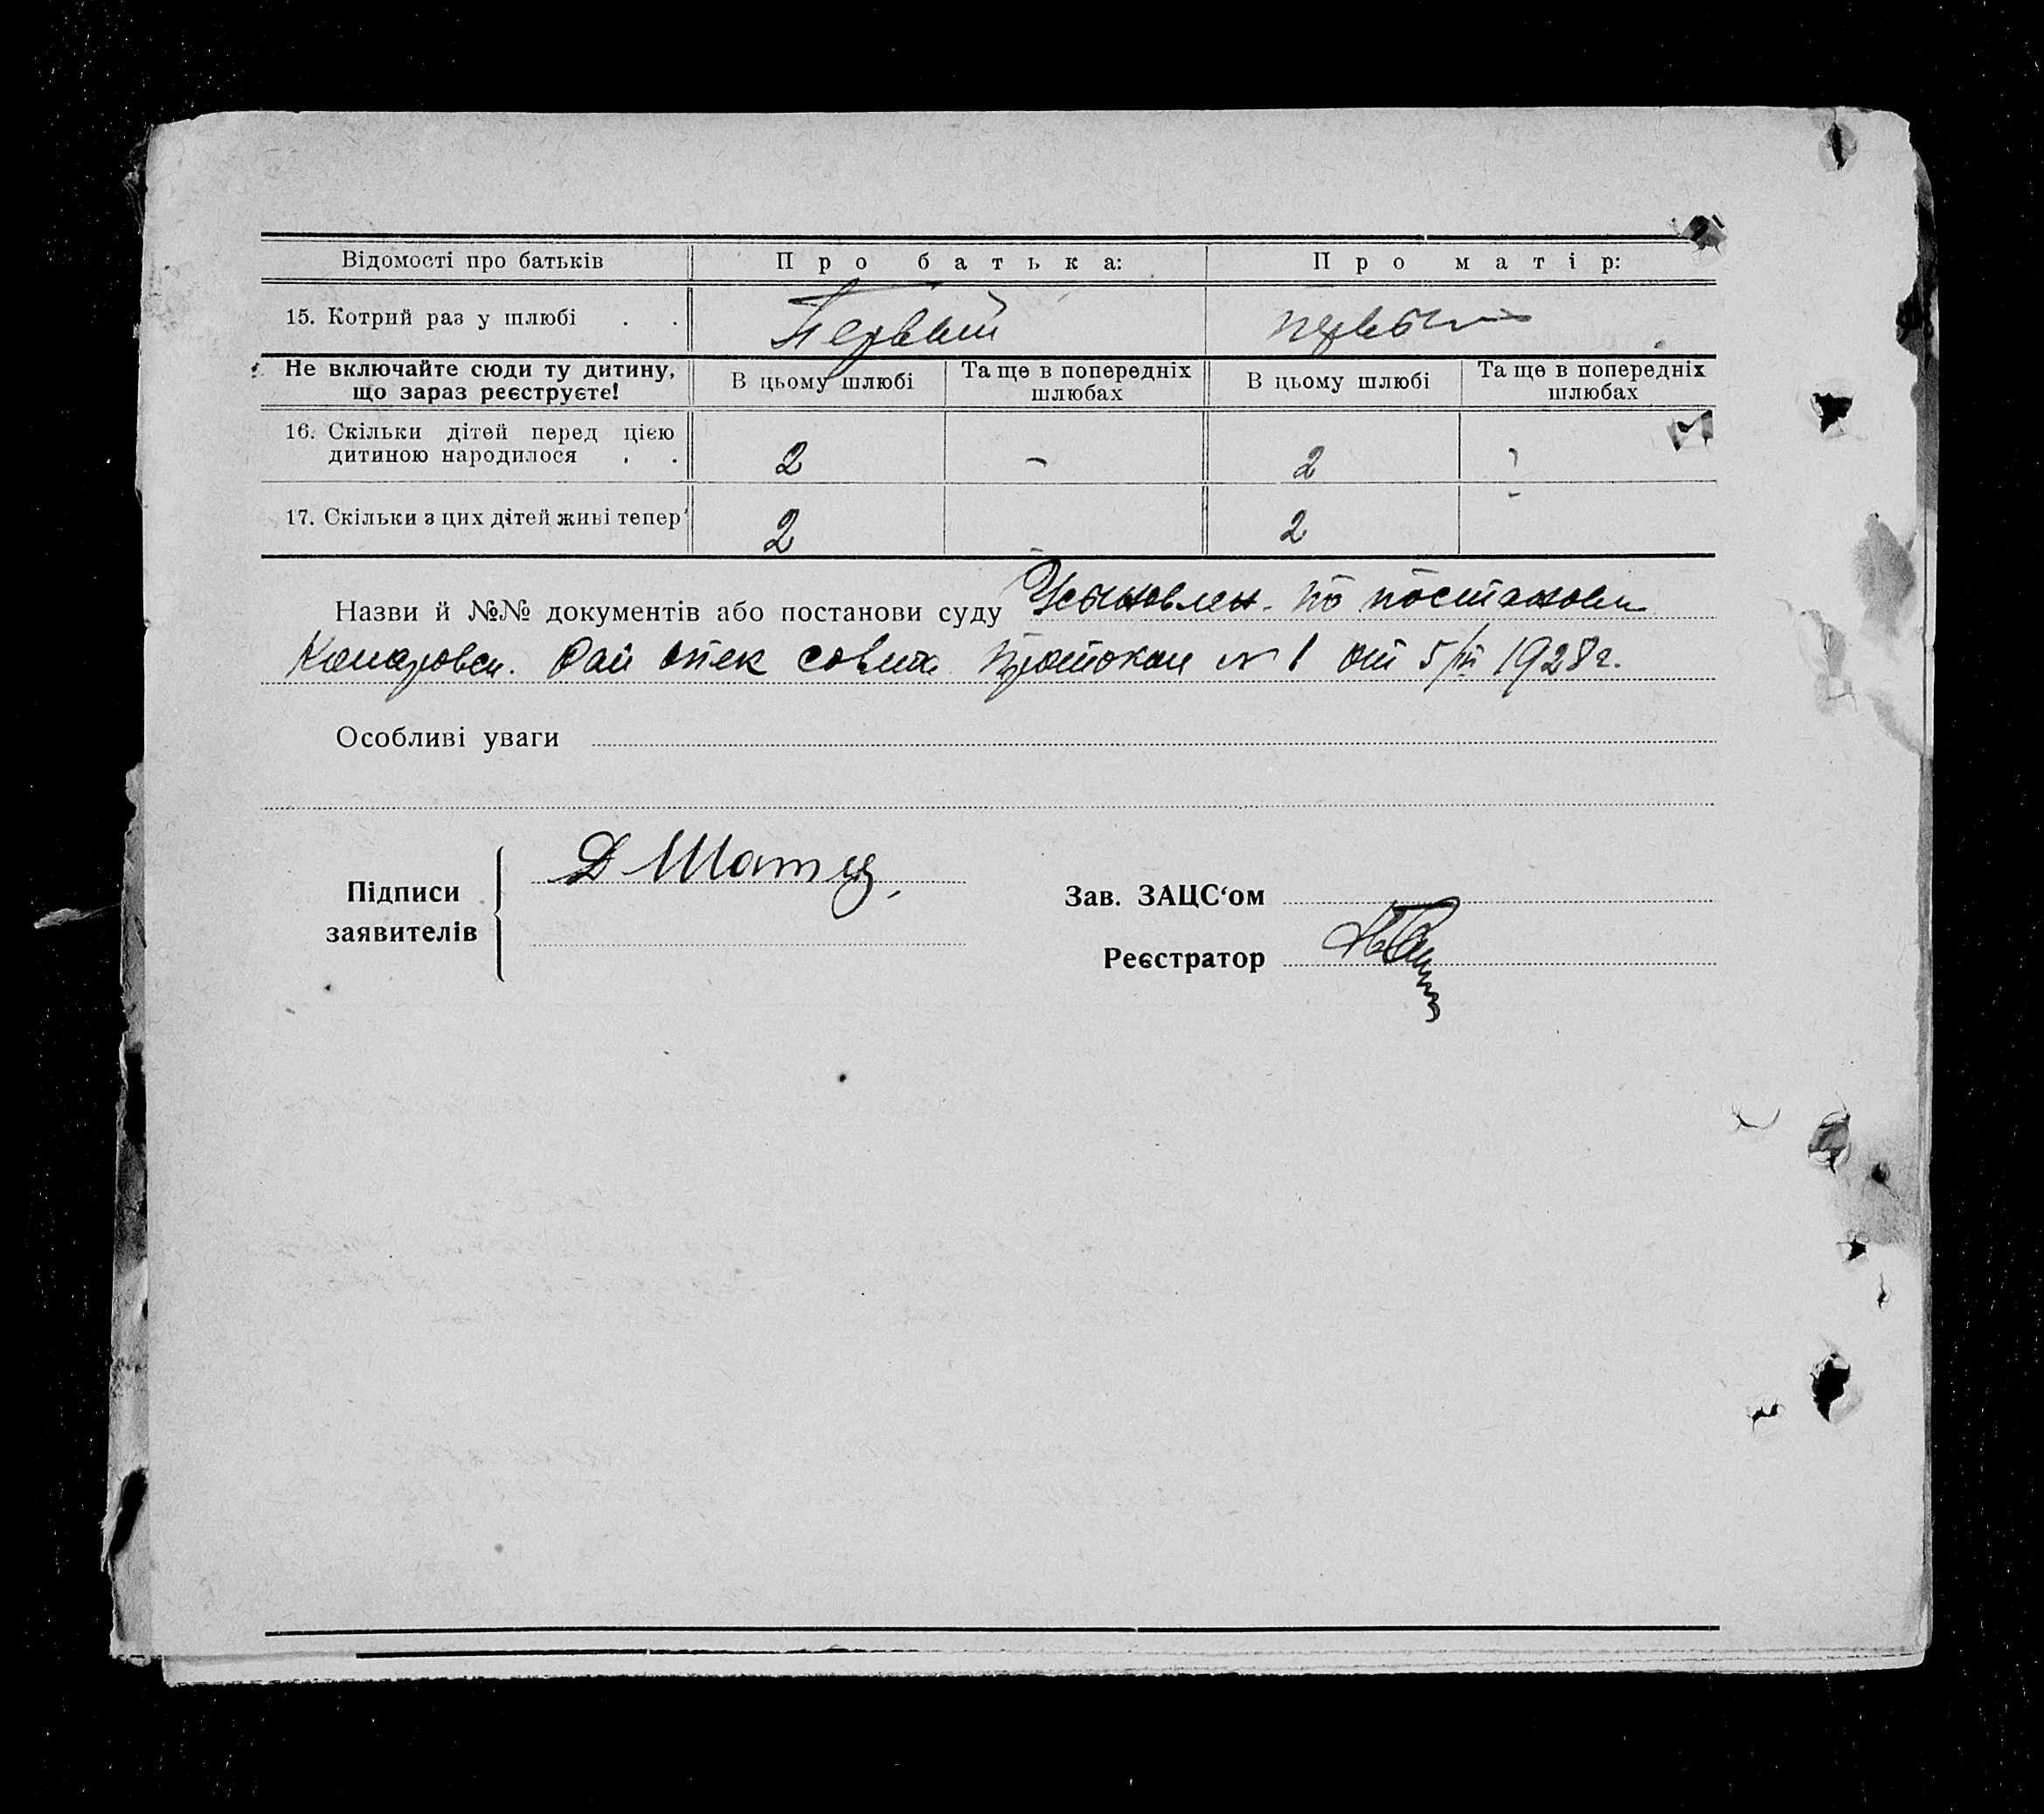 Відомості про батьків Про батька: Про матір:
15. Котрий раз у шлюбі . . Первый первый
Не включайте сюди ту дитину, що зараз реєструєте! В цьому шлюбі Та ще в попередніх шлюбах В цьому шлюбі Та ще в попередніх шлюбах
16. Скільки дітей перед цією
дитиною народилося . . 2 - 2
17. Скільки з цих дітей живі тепер 2 2
Назви й №№ документів або постанови суду Усыновлен. по постановл
Комаровск. Рай опек совета протокол № 1 от 5/III 1928 г.
Особливі уваги
Підписи
заявителів
Д Шатц
Зав. ЗАЦС‘ом
Реєстратор